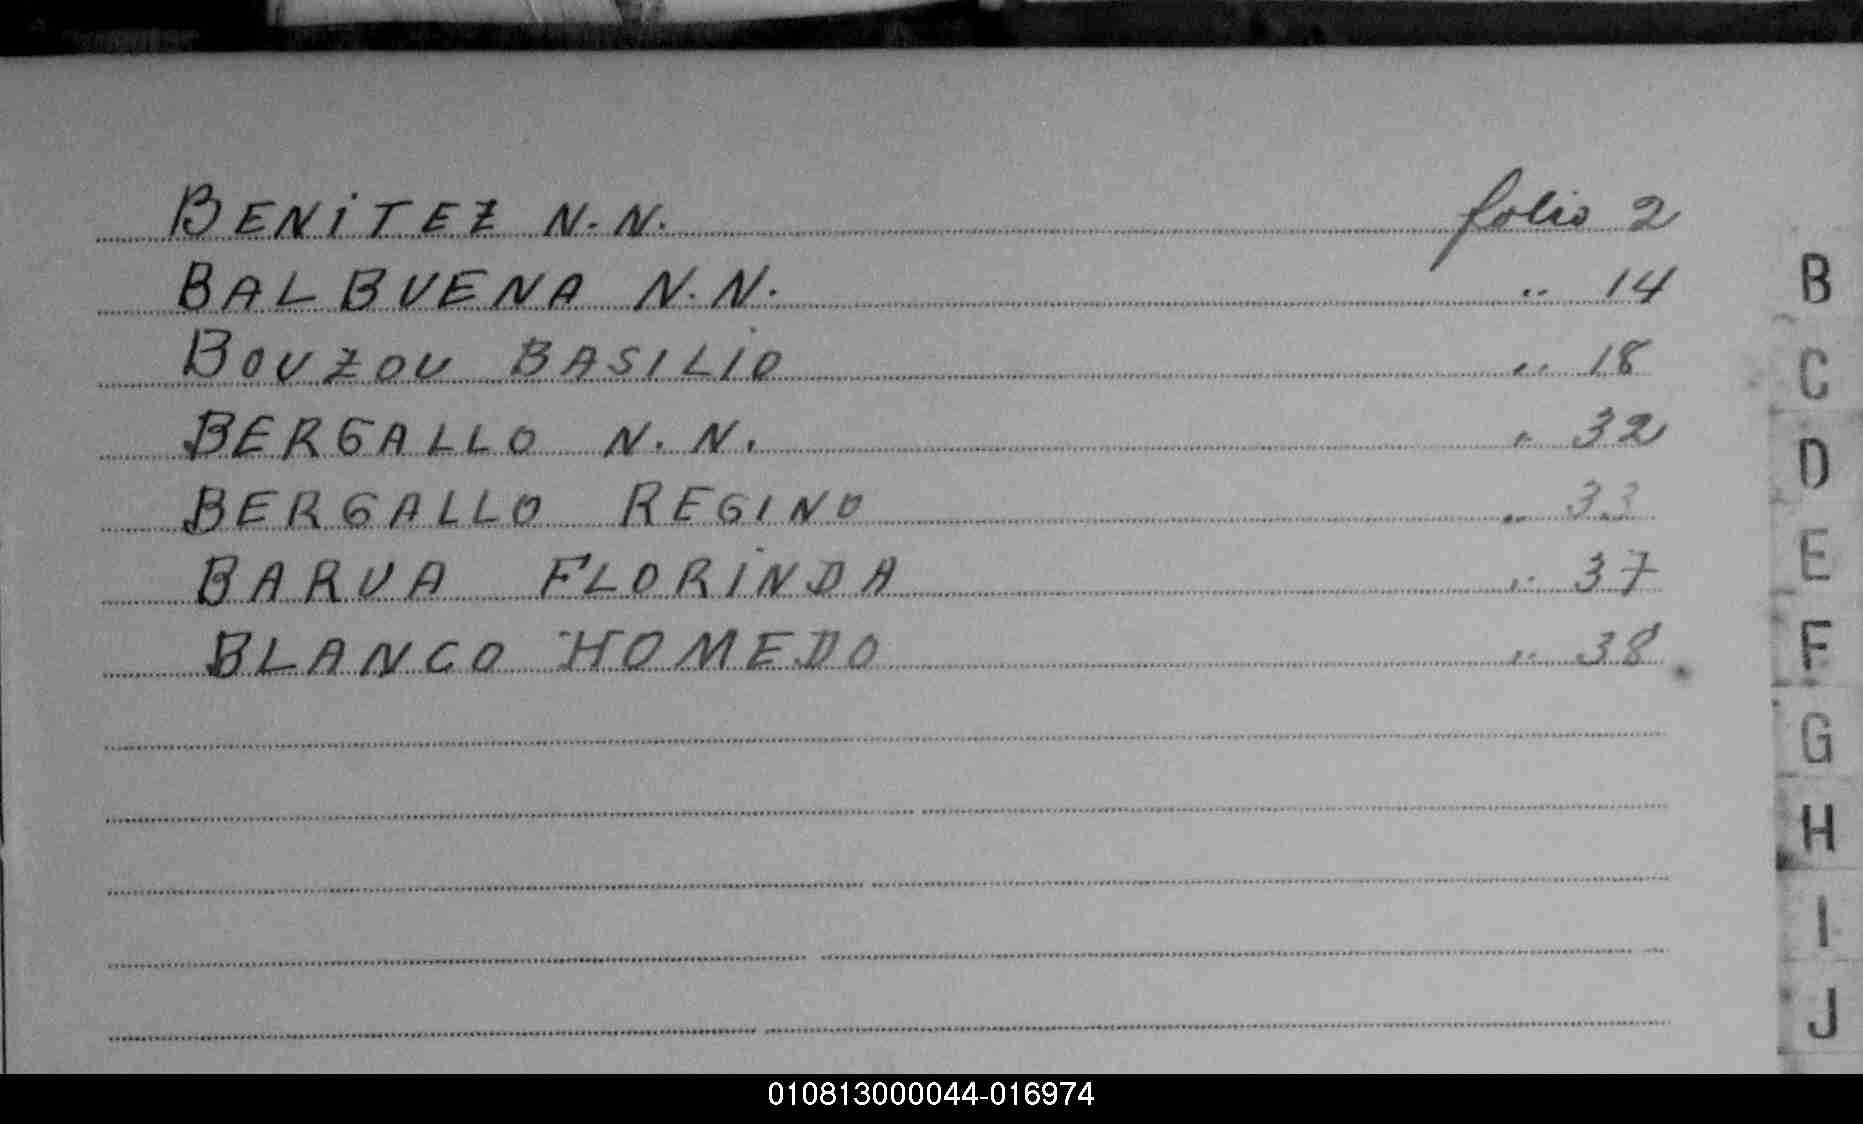 BENITEZ N.N. folio 2
BALBUENA N.N. .. 14
BOUZOU BASILIO .. 18
BERGALLO N.N. .. 32
BERGALLO REGINO .. 33
BARUA FLORINDA .. 37
BLANCO HOMEDO .. 38
B
C
D
E
F
G
H
I
J
010813000044-016974